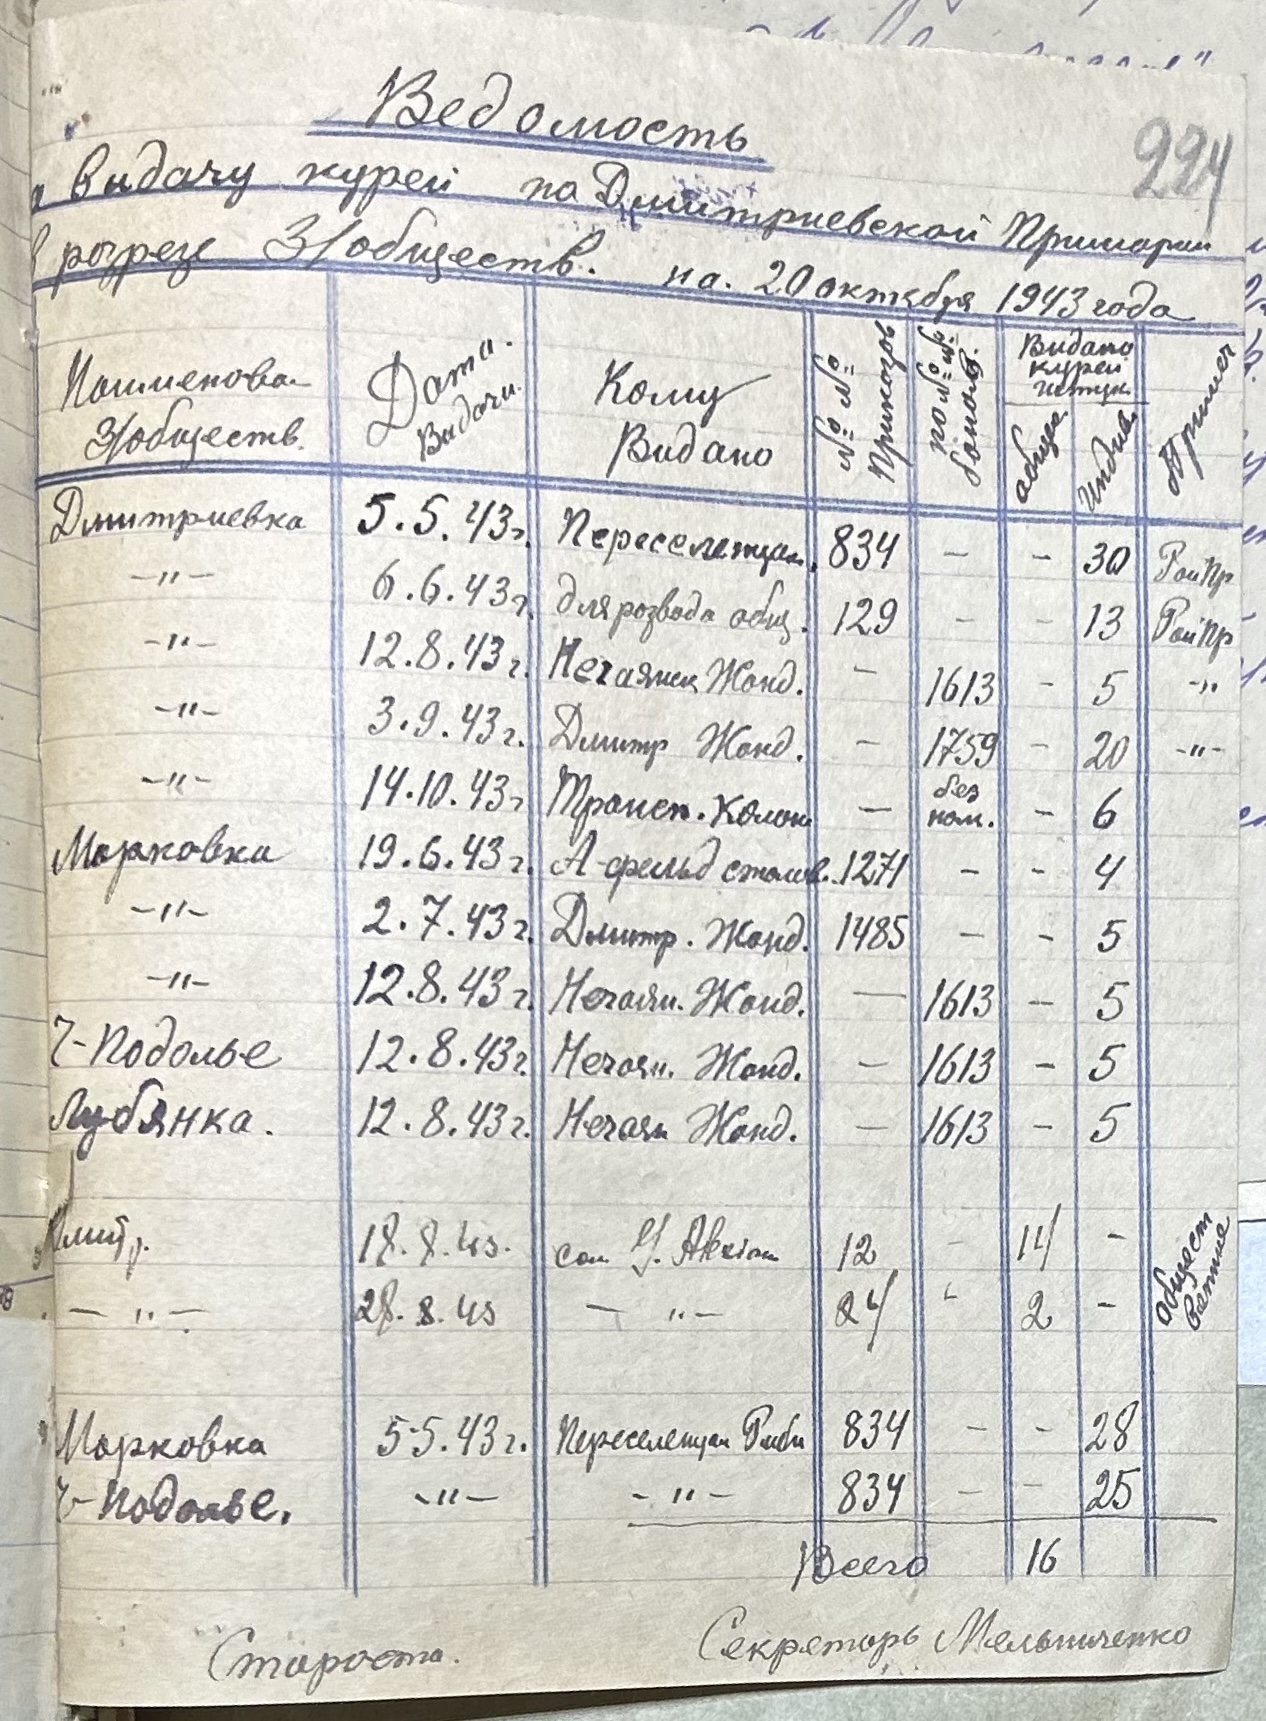 224
Ведомость
видачу курей по Дмитриевской Примарии
в розрезе З/обществ. на 20 октября 1943 года
Наименова- З/обществ. Дата Видачи. Кому Видано №№ Приказов по №№ бонам. Видано курей штук общес Индив Примеч
Дмитриевка 5.5.43г. Переселенцам. 834 – – 30 РайПр
–"– 6.6.43г. для розвода общ. 129 – – 13 РайПр
–"– 12.8.43г. Нечаянск Жанд. – 1613 – 5 –"
–"– 3.9.43г. Дмитр Жанд. – 1759 – 20 –"–
–"– 14.10.43г Трансп. Колон – без ном. – 6
Марковка 19.6.43г. А-фельд столов. 1271 – – 4
–"– 2.7.43г. Дмитр. Жанд. 1485 – – 5
–"– 12.8.43г. Нечаян. Жанд. – 1613 – 5
Ч-Подолье 12.8.43г. Нечаян. Жанд. – 1613 – 5
Лубянка. 12.8.43г. Нечаян Жанд. – 1613 – 5
Дмитр. 18.8.43. 12 – 14 – обществ
–"– 28.8.43 –"– 24 " 2 –
Марковка 5.5.43г. Переселенцам 834 – – 28
Ч-Подолье. –"– –"– 834 – – 25
Всего 16
Староста. Секреторь Мельниченко